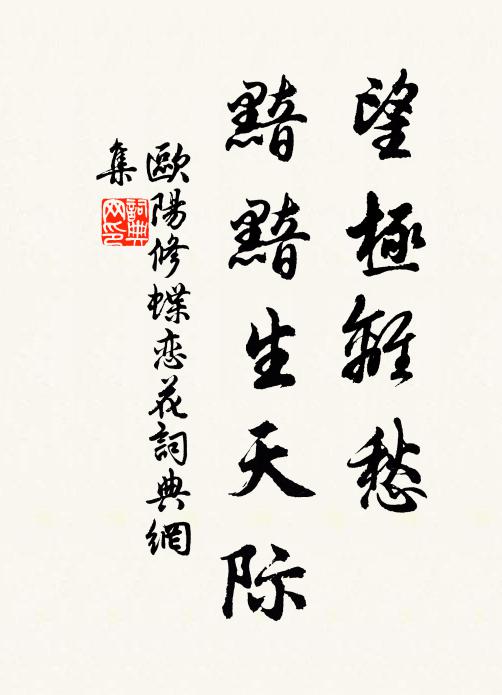 望極離愁
黯黯生天际
歐陽修蝶恋花詞典網
集
詞典网印